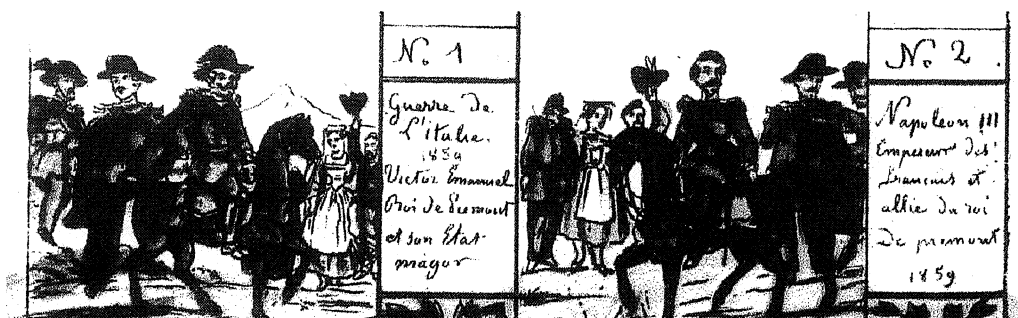 No. 1
Guerre de
L'italie.
1859
Victor Emanuel
Roi de Piemont
et son Etat
magor
No. 2.
Napoleon III
Empereur des
Francais et
allié du roi
De piemont
1859